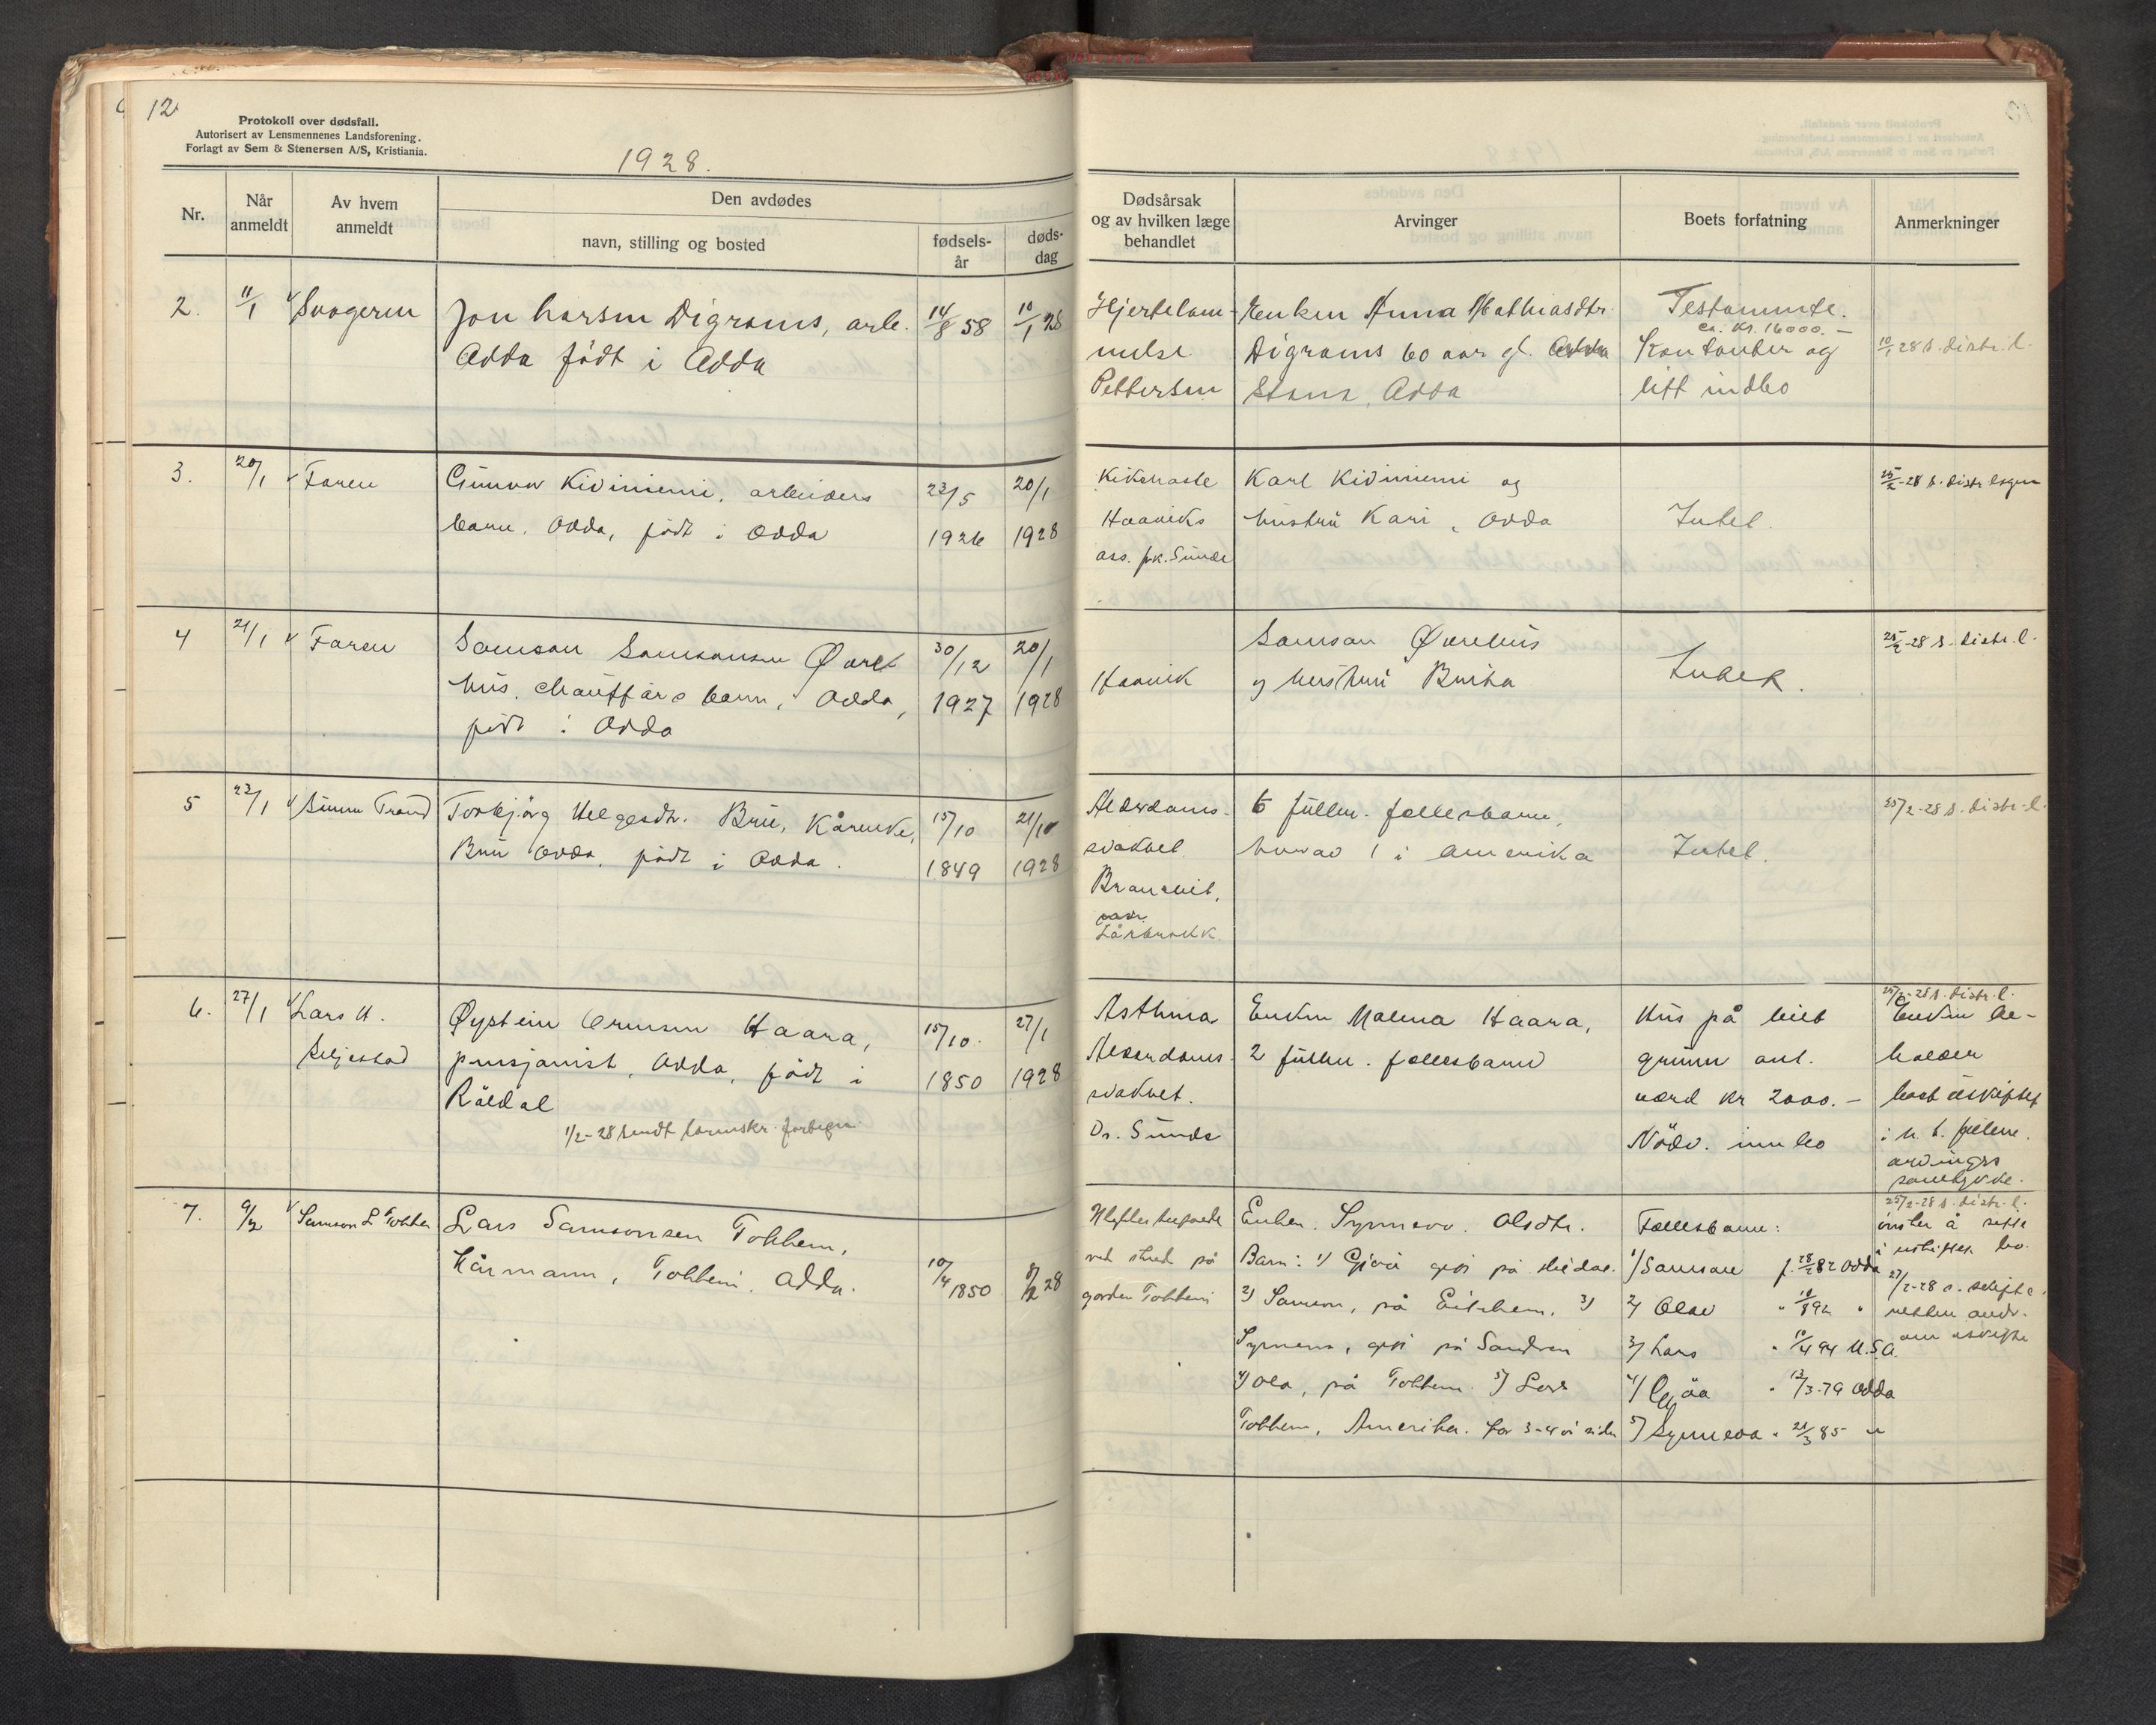 12
Protokoll over dødsfall.
Autorisert av Lensmennenes Landsforening.
Forlagt av Sem & Stenersen A/S, Kristiania.
1928.
Nr.
Når anmeldt
Av hvem anmeldt
Den avdødes
navn, stilling og bosted
fødsels-år
døds-dag
Dødsårsak og av hvilken læge behandlet
Arvinger
Boets forfatning
Anmerkninger
2. 11/1 Svogeren
Jon Larsen Digranes, arb.
Odda født i Odda
14/8 58
10/1 28
Hjertelam-
melse
Pettersen
Enken Anna Mathiasdtr.
Digranes 60 aar gl.
Odda
Testamente.
ca. kr. 16000.-
Kontanter og
litt indbo
10/1 28 s. distr. l.
3. 20/1 Faren
Gunvor Kiviniemi, arbeiders
barn, Odda, født i Odda
23/5
1926
20/1
1928
Kikhoste
Haaviks
ass. frk. Sunde
Karl Kiviniemi og
hustru Kari, Odda
Intet.
25/2-28 s. distr. legen
4 21/1 Faren
Samson Samsonsen Øvre-
hus, chaufførs barn, Odda,
født i Odda
30/12
1927
20/1
1928
Haavik
Samson Øvrehus
og hustru Brita
Intet.
25/2-28 s. distr. l.
5 23/1 Sønnen Trond
Torbjørg Helgesdtr. Bru, kårenke,
Bru Odda, født i Odda.
15/10
1849
21/1
1928
Alderdoms-
svakhet.
Lårbrudd.
6 fullm. fellesbarn,
hvorav 1 i Amerika
Intet.
25/2-28 s. distr. l.
6. 27/1 Lars H.
Seljestad
Øystein Ormsen Haara,
pensjonist, Odda, født i
Røldal
15/10.
1850
27/1
1928
Asthma
Alderdoms-
svakhet.
Dr. Sunde
Enken Malena Haara,
2 fullm. fellesbarn
Hus på leiet
grunn ant.
verd kr 2000.-
Nødv. innbo
25/2-28 s. distr. l.
Enken be-
holder
boet uskiftet
i h. t. fullm.
arvingers
samtykke.
7. 9/2 Samson L Tokheim
Lars Samsonsen Tokheim,
Kårmann, Tokheim, Odda.
10/4 1850
8/2 28
ved sted på
garden Tokheim
Enken. Synneva. Olsdtr.
2) Samson, på Eitrheim. 3)
Synneva, gift på Sandven
4) Ola, på Tokheim. 5) Lars
Tokheim, Amerika. for 3-4 år siden
Fællesbarn:
1) Samson f. 28/2 82 Odda
2) Olav " 10/8 92 "
3) Lars " 10/4 94 U.S.A.
4) Gjøa " 12/3-79 Odda
5) Synneva " 21/3 85 "
25/2-28 s. distr. l.
ønsker å sitte
i uskiftet bo.
27/2-28 s. skifte-
retten andr.
om uskifte